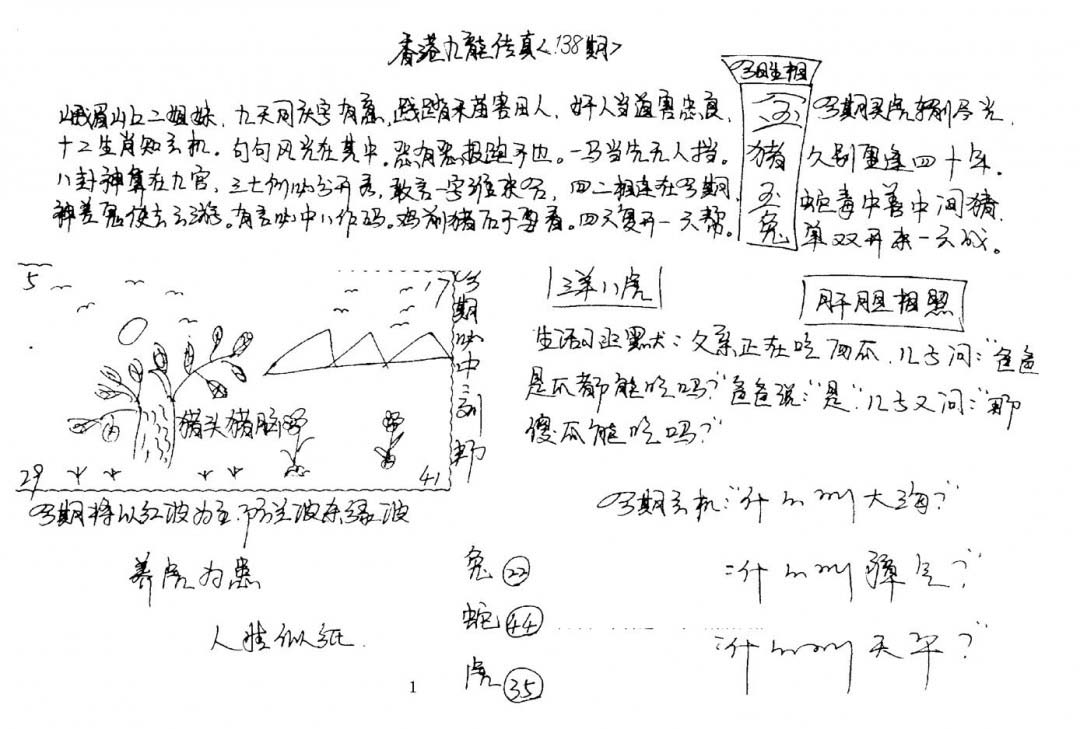 香港九龍传真<138期>
今日生相
峨眉山上二姐妹，九天同庆字有意，践踏禾苗害田人，奸人当道害忠良，
十二生肖知玄机。句句风光在其中。恶有恶报跑不也。一马当先无人挡。
八卦神算在九宫，三七例必分开看，敢言一字谁来否，四二相连在今期，
神差鬼使去云游。有言必中八作码。鸡前猪后于要看。四天复开一天帮。
玄
猪
玉
兔
今期买虎
久别重逢四十年。
蛇毒中兽中间猪，
单双开来一天战。
5
17
猪头猪脑
29
41
今期必中
三羊八虎
肝胆相照
父亲正在吃西瓜，儿子问："爸爸
是瓜都能吃吗？"爸爸说："是"。儿子又问："那
傻瓜能吃吗？"
今期将以红波为主，防兰波杀绿波
养虎为患
人生似纸
今期玄机："什么叫大海？"
:什么叫 ？"
:什么叫天平？"
兔 22
蛇 44
虎 35
1